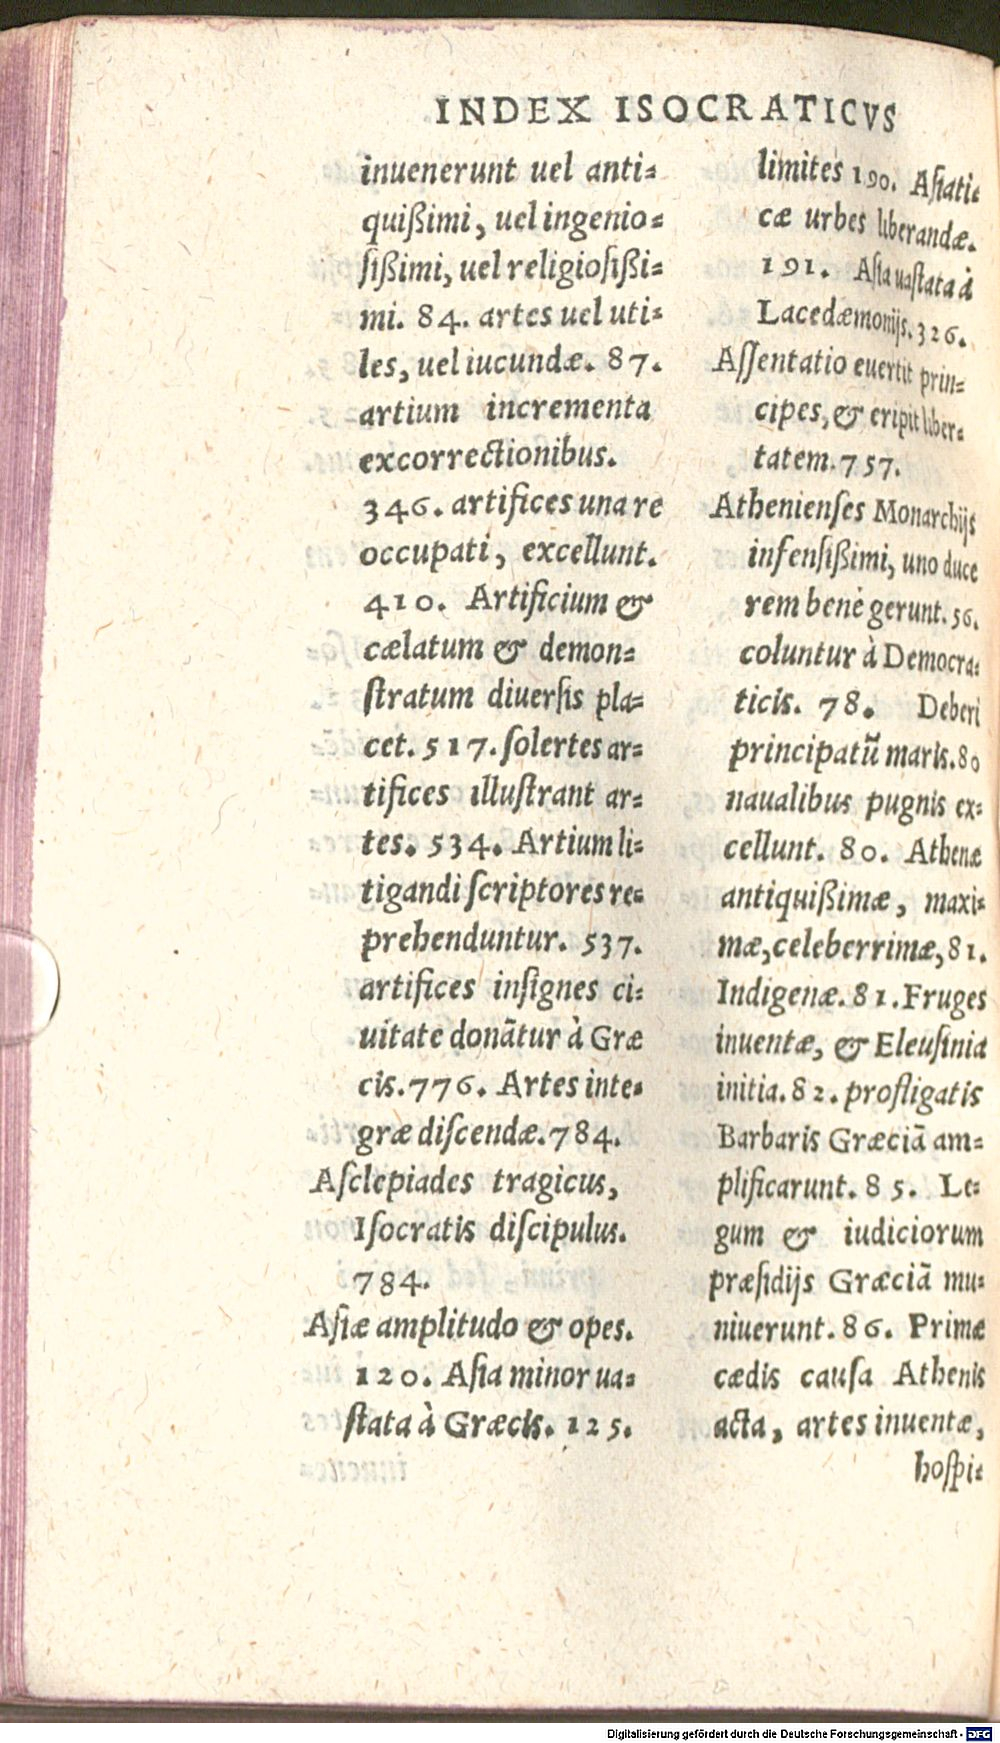 INDEX ISOCRATICVS
inuenerunt uel anti-
quißimi, uel ingenio-
ſißimi, uel religioſißi-
mi. 84. artes uel uti-
les, uel iucundæ. 87.
artium incrementa
ex correctionibus.
346. artifices una re
occupati, excellunt.
410. Artificium &
cælatum & demon-
ſtratum diuerſis pla-
cet. 517. ſolertes ar-
tifices illuſtrant ar-
tes. 534. Artium li-
tigandi ſcriptores re-
prehenduntur. 537.
artifices inſignes ci-
uitate donãtur à Græ
cis. 776. Artes inte-
græ diſcendæ. 784.
Aſclepiades tragicus,
Iſocratis diſcipulus.
784.
Aſiæ amplitudo & opes.
120. Aſia minor ua-
ſtata à Græcis. 125.
limites 190. Aſiati-
cæ urbes liberandæ.
191. Aſia uaſtata à
Lacedæmonijs. 326.
Aſſentatio euertit prin-
cipes, & eripit liber-
tatem. 757.
Athenienſes Monarchijs
infenſißimi, uno duce
rem benè gerunt. 56.
coluntur à Democra-
ticis. 78. Deberi
principatũ maris. 80
naualibus pugnis ex-
cellunt. 80. Athenæ
antiquißimæ, maxi-
mæ, celeberrimæ, 81.
Indigenæ. 81. Fruges
inuentæ, & Eleuſinia
initia. 82. profligatis
Barbaris Græciã am-
plificarunt. 85. Le-
gum & iudiciorum
præſidijs Græciã mu-
niuerunt. 86. Primæ
cædis cauſa Athenis
acta, artes inuentæ,
hoſpi-
Digitalisierung gefördert durch die Deutsche Forschungsgemeinschaft - DFG